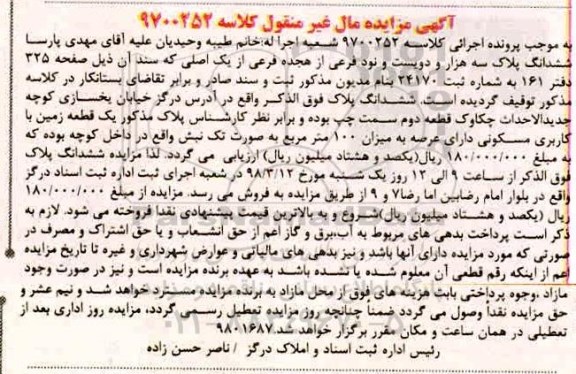 آگهی مزایده مال غیر منقول کلاسه ۹۷۰۰۲۵۲
به موجب پرونده اجرائی کلاسه ۹۷۰۰۲۵۲ شعبه اجرا له:خانم طیبه وحیدیان علیه آقای مهدی پارسا
ششدانگ پلاک سه هزار و دویست و نود فرعی از هجده فرعی از یک اصلی که سند آن ذیل صفحه ۳۲۵
دفتر ۱۶۱ به شماره ثبت ۲۴۱۷۰ بنام مدیون مذکور ثبت و سند صادر و برابر تقاضای بستانکار در کلاسه
مذکور توقیف گردیده است. ششدانگ پلاک فوق الذکر واقع در آدرس درگز خیابان یخسازی کوچه
جدیدالاحداث چکاوک قطعه دوم سمت چپ بوده و برابر نظر کارشناس پلاک مذکور یک قطعه زمین با
کاربری مسکونی دارای عرصه به میزان ۱۰۰ متر مربع به صورت تک نبش واقع در داخل کوچه بوده که
به مبلغ ۱۸۰/۰۰۰/۰۰۰ ریال(یکصد و هشتاد میلیون ریال) ارزیابی می گردد. لذا مزایده ششدانگ پلاک
فوق الذکر از ساعت ۹ الی ۱۲ روز یک شنبه مورخ ۹۸/۳/۱۲ در شعبه اجرای ثبت اداره ثبت اسناد درگز
واقع در بلوار امام رضابین اما رضا۷ و ۹ از طریق مزایده به فروش می رسد. مزایده از مبلغ ۱۸۰/۰۰۰/۰۰۰
ریال (یکصد و هشتاد میلیون ریال)شروع و به بالاترین قیمت پیشنهادی نقدا فروخته می شود. لازم به
ذکر است پرداخت بدهی های مربوط به آب،برق و گاز اعم از حق انشعاب و یا حق اشتراک و مصرف در
صورتی که مورد مزایده دارای آنها باشد و نیز بدهی های مالیاتی و عوارض شهرداری و غیره تا تاریخ مزایده
اعم از اینکه رقم قطعی آن معلوم شده یا نشده باشد به عهده برنده مزایده است و نیز در صورت وجود
مازاد ،وجوه پرداختی بابت هزینه های فوق از محل مازاد به برنده مزایده مسترد خواهد شد و نیم عشر و
حق مزایده نقداً وصول می گردد ضمناً چنانچه روز مزایده تعطیل رسمی گردد، مزایده روز اداری بعد از
تعطیلی در همان ساعت و مکان مقرر برگزار خواهد شد.۹۸۰۱۶۸۷
رئیس اداره ثبت اسناد و املاک درگز / ناصر حسن زاده